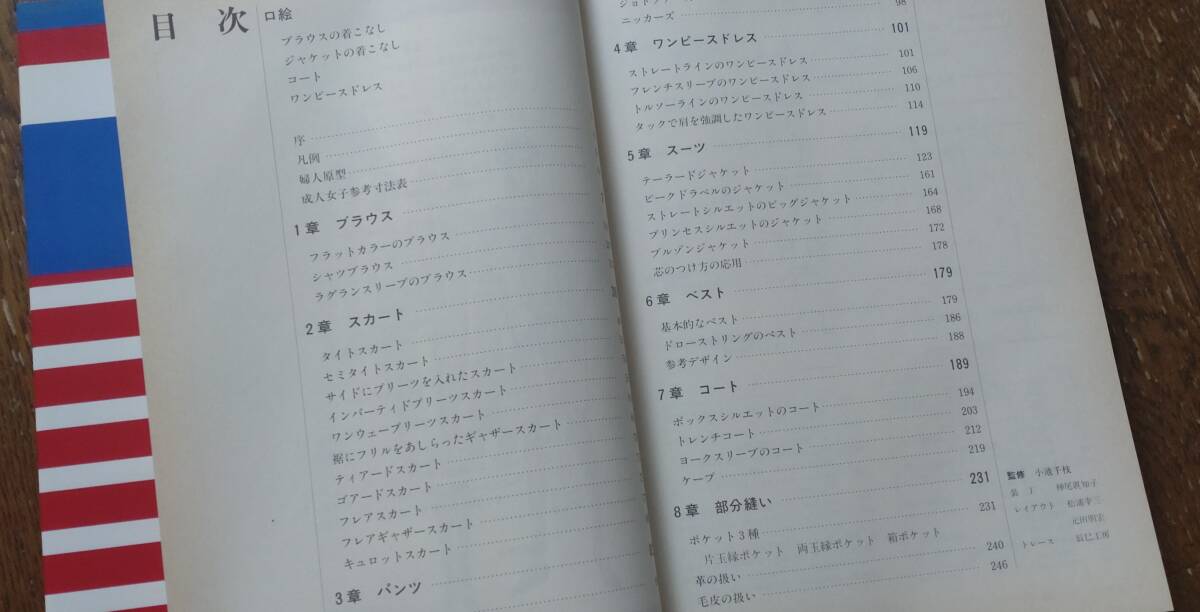 目次
口絵
ブラウスの着こなし
ジャケットの着こなし
コート
ワンピースドレス
序
凡例
婦人原型
成人女子参考寸法表
1章 ブラウス
フラットカラーのブラウス
シャツブラウス
ラグランスリーブのブラウス
2章 スカート
タイトスカート
セミタイトスカート
サイドにプリーツを入れたスカート
インバーティドプリーツスカート
ワンウェープリーツスカート
裾にフリルをあしらったギャザースカート
ティアードスカート
ゴアードスカート
フレアスカート
フレアギャザースカート
キュロットスカート
3章 パンツ
ニッカーズ 98
4章 ワンピースドレス 101
ストレートラインのワンピースドレス 101
フレンチスリーブのワンピースドレス 106
トルソーラインのワンピースドレス 110
タックで肩を強調したワンピースドレス 114
5章 スーツ 119
テーラードジャケット 123
ピークドラペルのジャケット 161
ストレートシルエットのビッグジャケット 164
プリンセスシルエットのジャケット 168
ブルゾンジャケット 172
芯のつけ方の応用 178
6章 ベスト 179
基本的なベスト 179
ドローストリングのベスト 186
参考デザイン 188
7章 コート 189
ボックスシルエットのコート 194
トレンチコート 203
ヨークスリーブのコート 212
ケープ 219
8章 部分縫い 231
ポケット3種 231
片玉縁ポケット 両玉縁ポケット 箱ポケット
革の扱い 240
毛皮の扱い 246
監修 小池千枝
装丁
レイアウト 松浦幸三
トレース